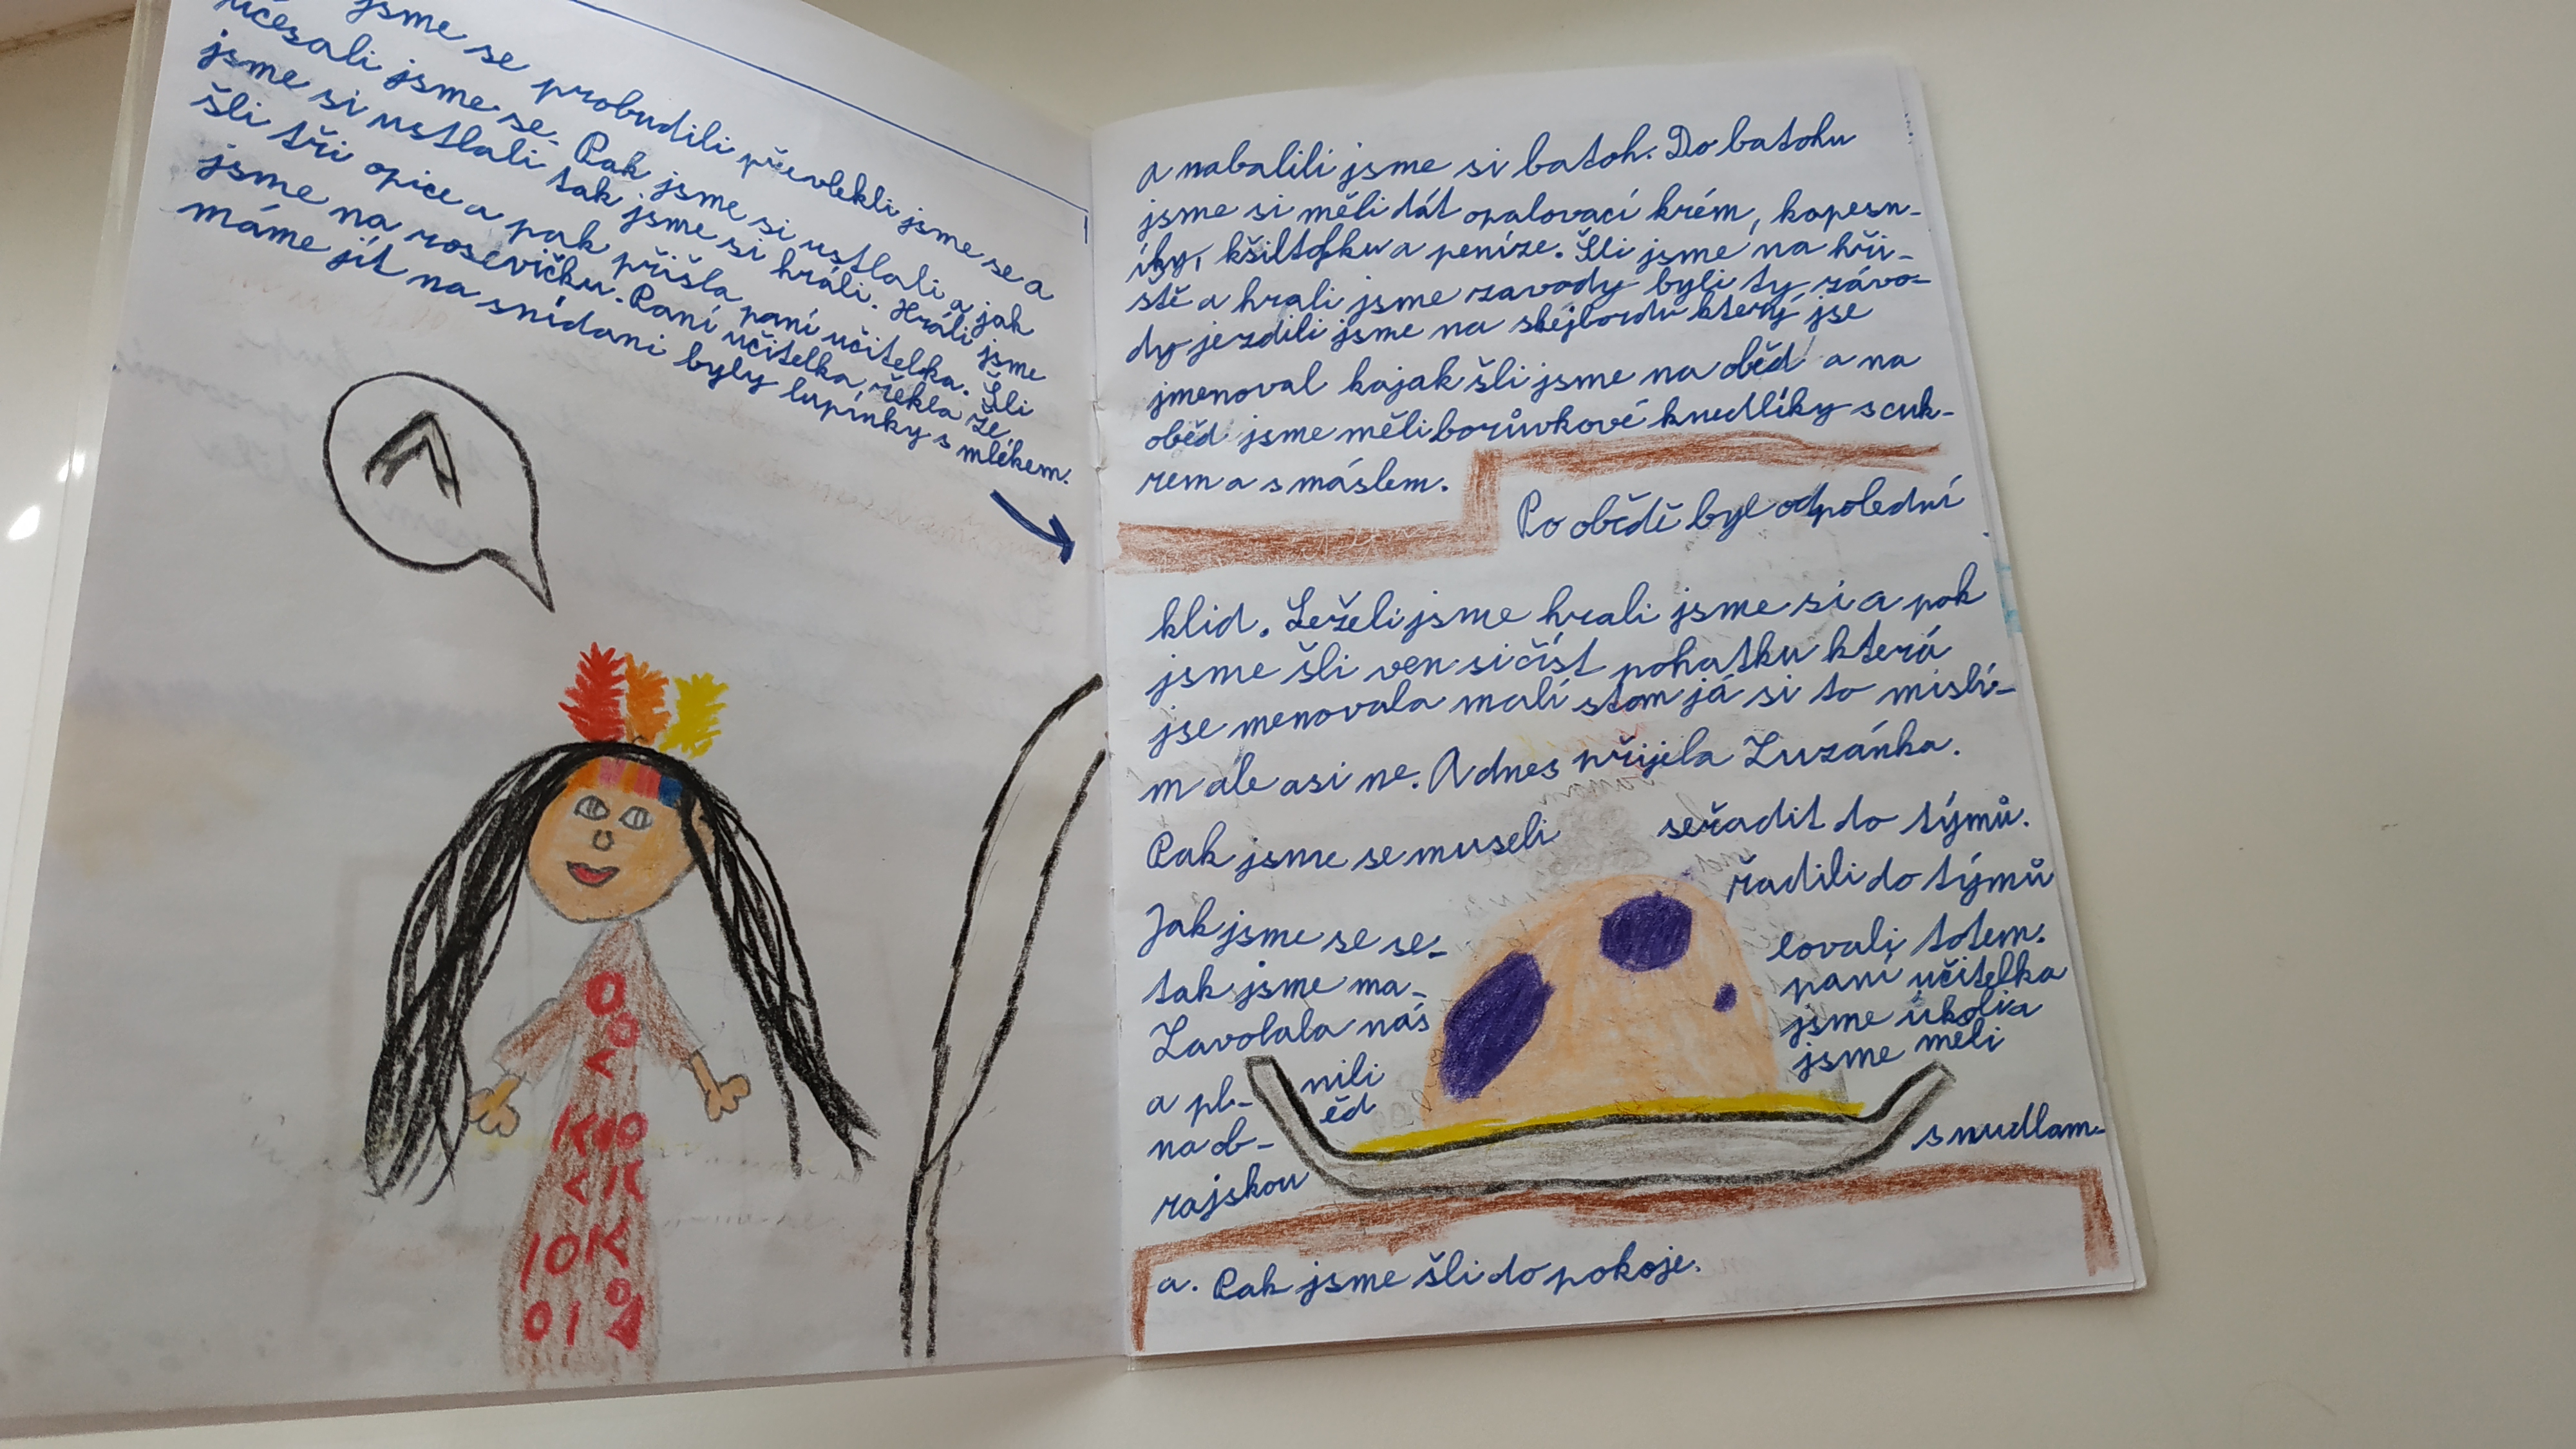 jsme se probudili převlekli jsme se a
učesali jsme se. Pak jsme si ustlali a jak
jsme si ustlali tak jsme si hráli. Hráli jsme
šli tři opice a pak přišla paní učitelka. Šli
jsme na rosevičku. Paní učitelka řekla že
máme jít na snídani byly lupínky s mlékem.
a nabalili jsme si batoh. Do batohu
jsme si měli dát opalovací krém, kapesn-
íky, kšiltofku a peníze. Šli jsme na hři-
stě a hrali jsme zavody byli ty závo-
dy jezdili jsme na skejbordu který jse
jmenoval kajak šli jsme na oběd a na
oběd jsme měli borůvkové knedlíky s cuk-
rem a s máslem.
Po obědě byl odpolední
klid. Leželi jsme hrali jsme si a pak
jsme šli ven si číst pohatku která
jse menovala malí stom já si to mislí-
m ale asi ne. A dnes přijela Zuzánka.
Pak jsme se museli seřadit do týmů.
Jak jsme se se- řadili do týmů
tak jsme ma- lovali totem.
Zavolala nás paní učitelka
a pl- nili jsme úkoli a
na ob- ěd jsme měli
rajskou s nudlam-
a. Pak jsme šli do pokoje.